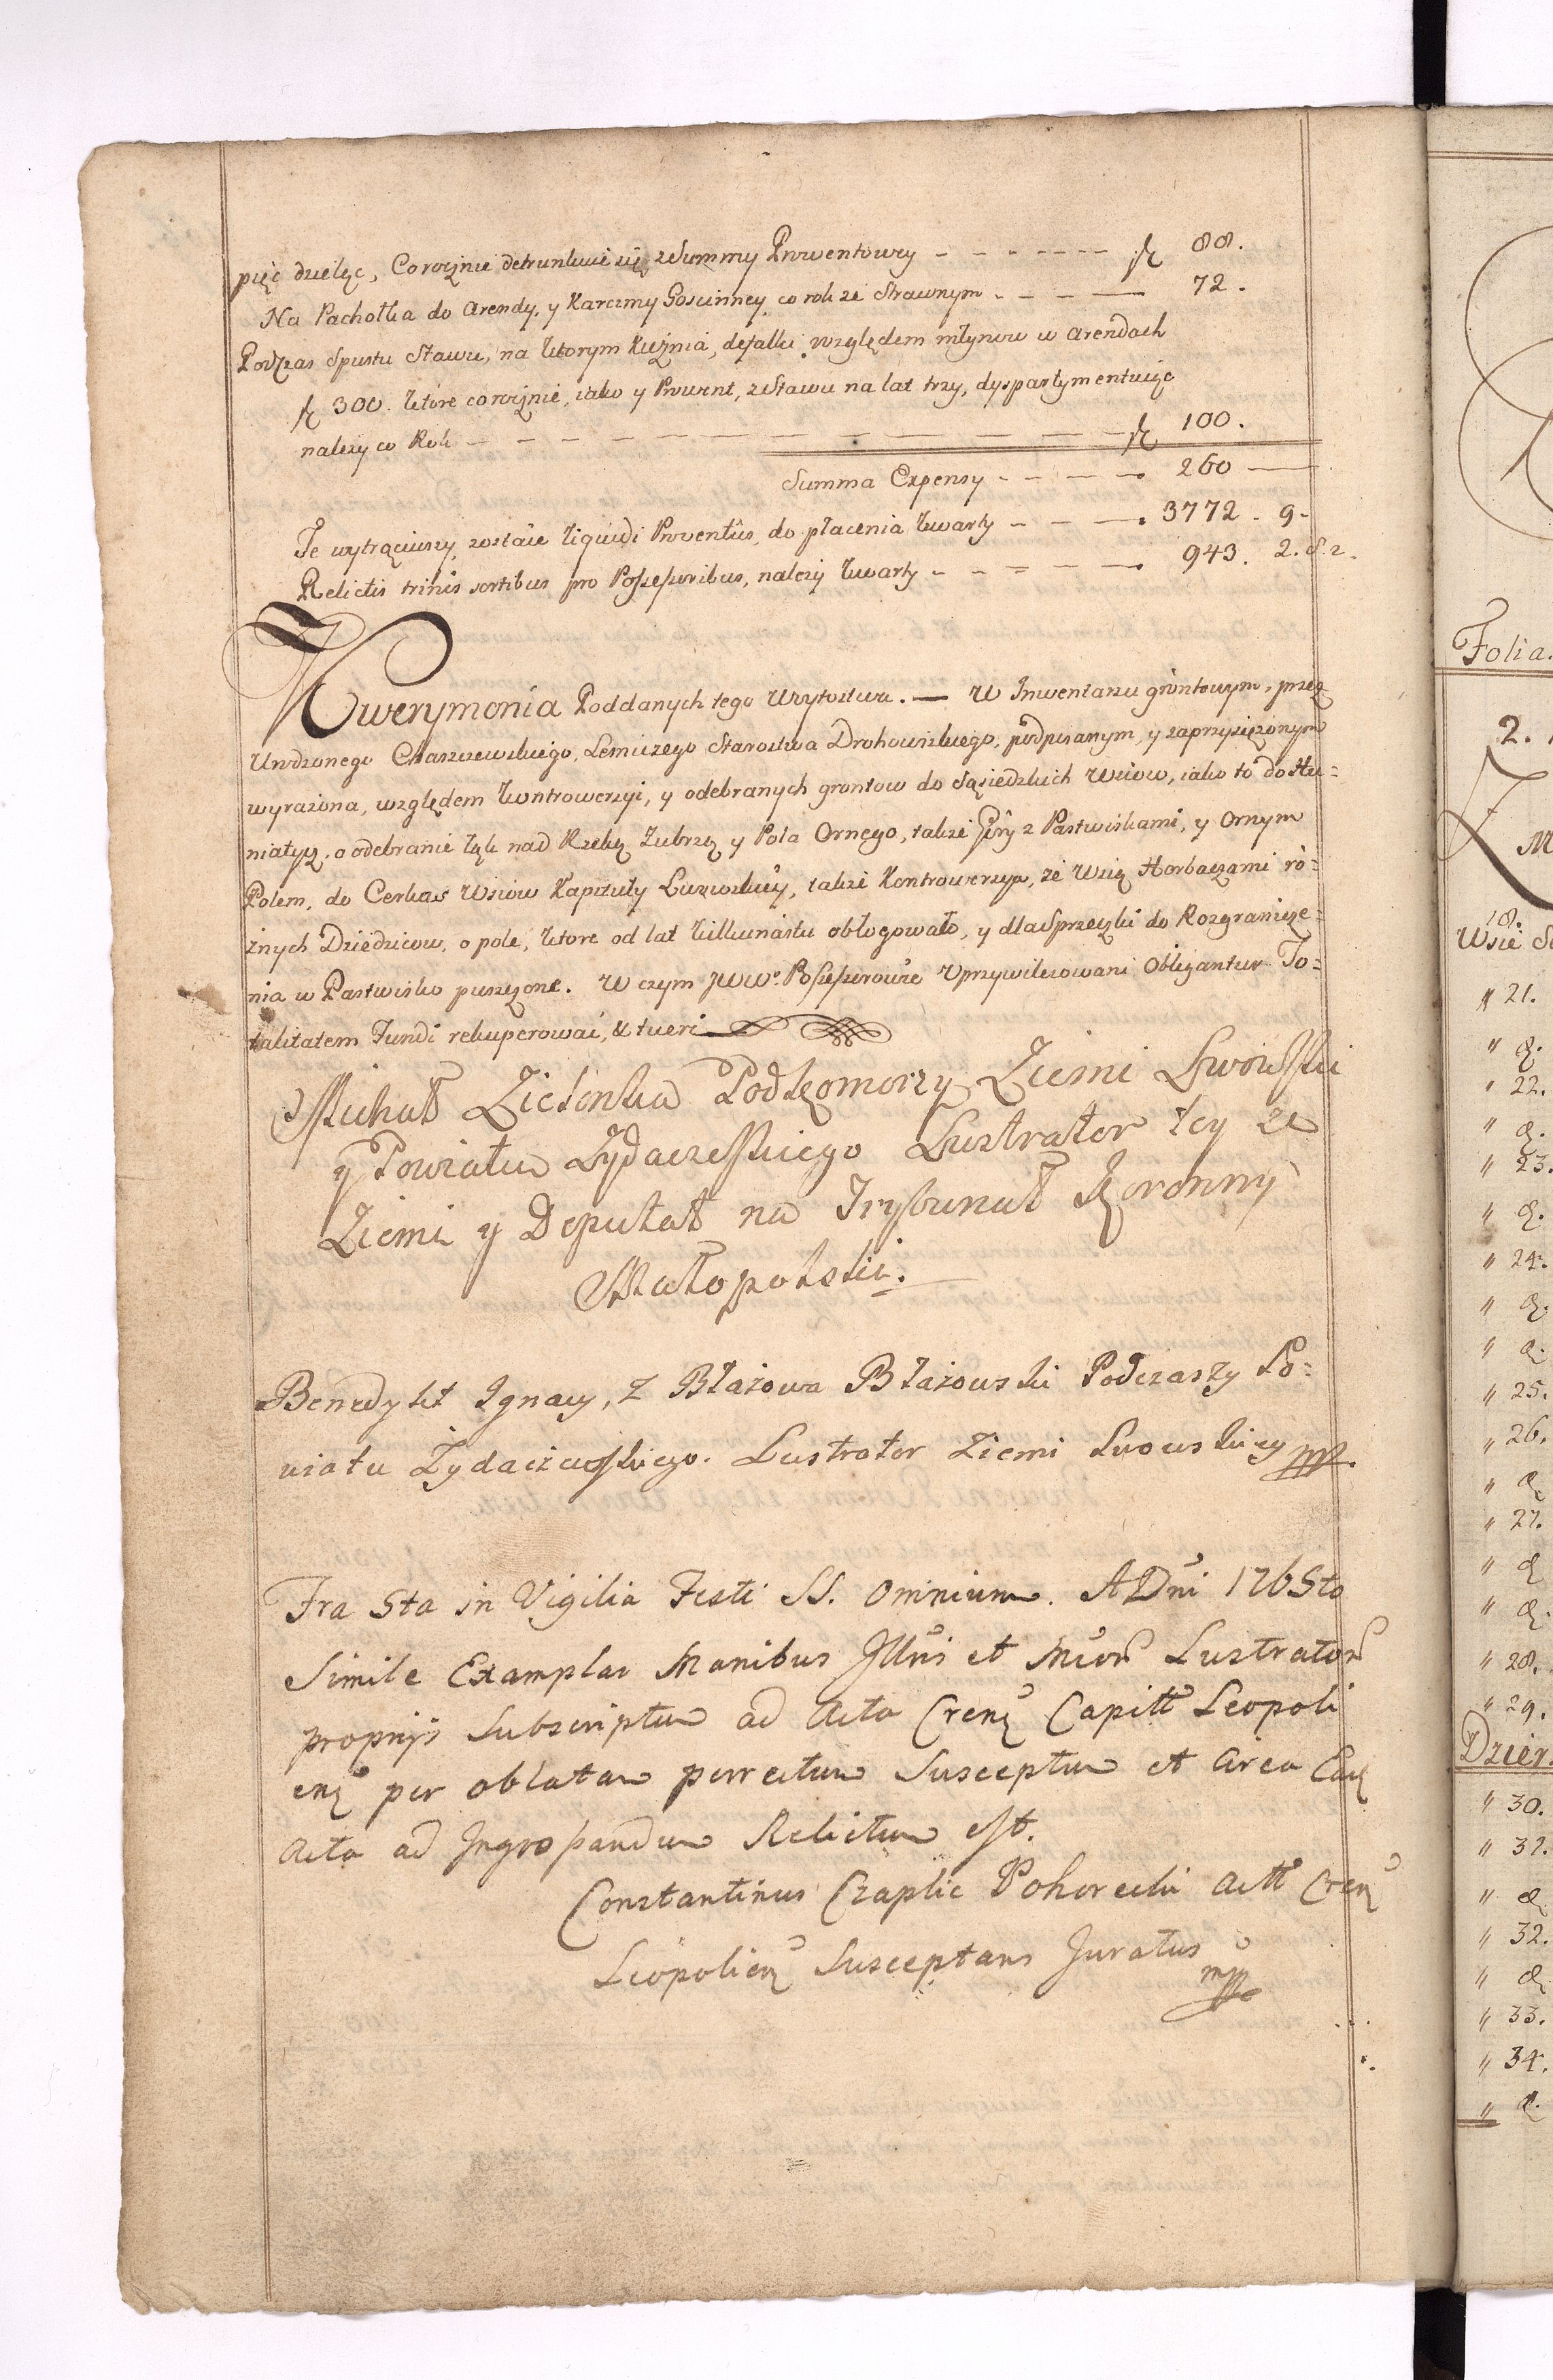 pięć dzieląc, Corocznie detrunkuie się, z Summy Prowentowey - - - - - - - fl 88.
Na Pachołka do Arendy, y Karczmy Goscinney, co rok ze Strawnym - - - 72.
Podczas Spustu Stawu, na ktorym Kuźnia, defalki względem młynow w Arendach
fl 300. ktore corocznie, iako y Prowent, z Stawu na lat trzy, dyspartymentuiąc
należy co Rok - - - - - - - - - - fl 100.
Summa Expensy - - - - 260
Te wytrąciwszy, zostaie liquidi Proventus, do płacenia kwarty - - - 3772. 9-
Relictis trinis sortibus pro Possessoribus, należy kwarty - - - - 943. 2. 8. 2.
Kwerymonia Poddanych tego Wzytostwa. — W Inwentarzu grontowym, przez
Urodzonego Craszewskiego, Lesniczego Starostwa Drohowizkiego, podpisanym, y zaprzysiężonym
wyrażona, względem kontrowerzyi, y odebranych grontow do Sąsiedzkich Wsiow, iako to do Hu=
niatycz, o odebranie łąk nad Rzeką Zubrzą y Pola Ornego, także Góry z Pastwiskami, y Ornym
Polem, do Cerkas Wsiow Kapituły Lwowskiey, także Kontrowerzya, ze Wsią Horbaczami ró=
żnych Dziedzicow, o pole, ktore od lat kilkunastu obłogowało, y dla Sprzeczki do Rozgranicze=
nia w Pastwisko puszczone. W czym JWW. Possessorowie Uprzywileiowani Obligantur To=
talitatem Fundi rekuperować, & tueri
Michał Zielonka Podkomorzy Ziemi Lwowskiei
y Powiatu Zydaczeskiego Lustrator tey ze
Ziemi y Deputat na Trybunał Koronny
Małopolski.
Benedykt Ignacy, z Błażowa Błażowski Podczaszy Po=
wiatu Zydaczewskiego. Lustrator Ziemi Lwowskiey mp.
Fra 5ta in Vigilia Festi SS. Omnium. A Dni 1765to
Simile Examplar Manibus Illris et Mcor Lustrator
proprijs Subscriptum ad Acta Cren Capitt Leopoli
en per oblatam porrectum Susceptum et circa Ead
Acta ad Ingrossandum Relictum est.
Constantinus Czaplic Pohorecki Actt Cren
Leopolien Susceptans Juratus
mp
Folia.
2.
18.
Wsie
" 21.
" 22.
" 23.
" 24.
" 25.
" 26.
" 27.
" 28.
" 29.
Dzier
" 30.
" 32.
" 32.
" 33.
" 34.